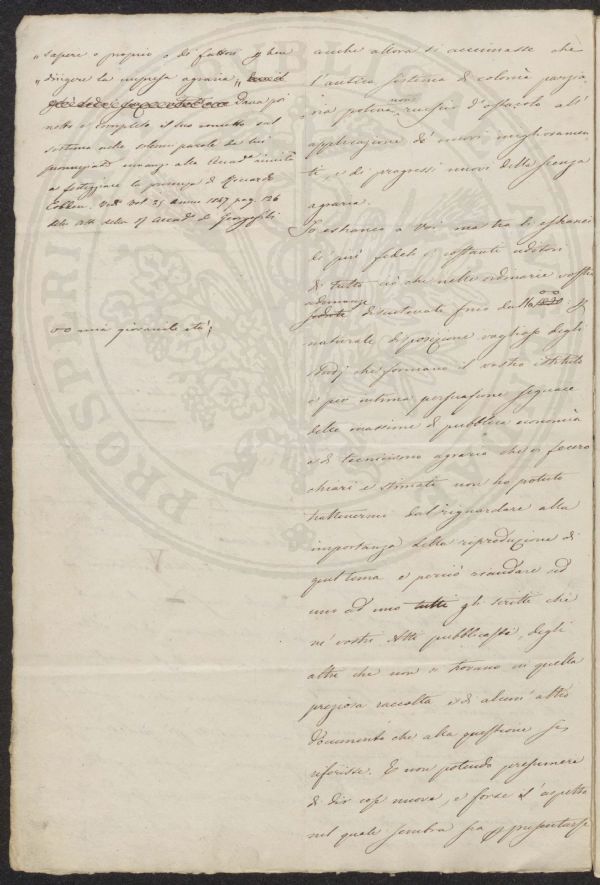 „ sapere o proprio o di fattori per ben
„ dirigere la impresa agraria „
dava poi
netto e completo il suo concetto sul
sistema nelle solenni parole da lui
pronunziate innanzi alla Accad.a riunita
a festeggiare la presenza di Riccardo
Cobden. Vedi Vol. 25 Anno 1847 pag. 126
delli Atti della R. Accad. de' Georgofili
oo mia giovanile età;
anche allora si accennasse che
l'antico sistema di colonia parzia
ria poteva non riuscir d'ostacolo all'
applicazione de' nuovi miglioramen
ti, e di progressi nuovi della scienza
agraria.
Io estraneo a Voi, ma tra li estranei
li più fedeli e costanti uditori
di tutto ciò che nelle ordinarie vostre
adunanze discutevate fino dalla oo per
naturale disposizione vaghissimo degli
studj che formano il vostro istituto
e per intima persuasione seguace
delle massime di pubblica economia
e di tecnicismo agrario che vi fecero
chiari e stimati non ho potuto
trattenermi dal riguardare alla
importanza della reproduzione di
quel tema e perciò riandare ad
uno ad uno tutti gli scritti che
ne' vostri Atti pubblicaste, degli
altri che non si trovano in quella
preziosa raccolta e di alcuni altri
documenti che alla questione si
riferisse. E non potendo presumere
di dir cose nuove, e forse l'aspetto
nel quale sembra sia presentarsi